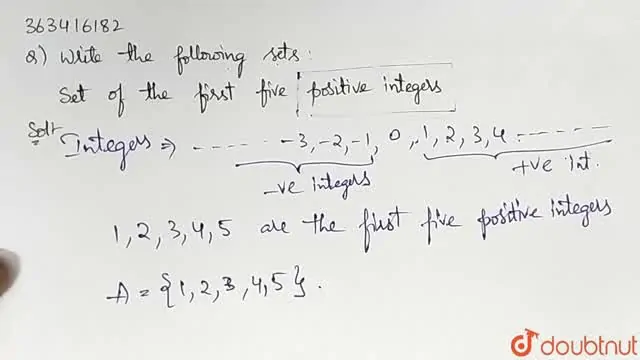 363416182
Q) Write the following sets:
Set of the first five positive integers
Soln Integers ⇒ ...... -3, -2, -1, 0, 1, 2, 3, 4 ------
-ve integers +ve Int.
1, 2, 3, 4, 5 are the first five positive integers
A = {1, 2, 3, 4, 5}.
doubtnut